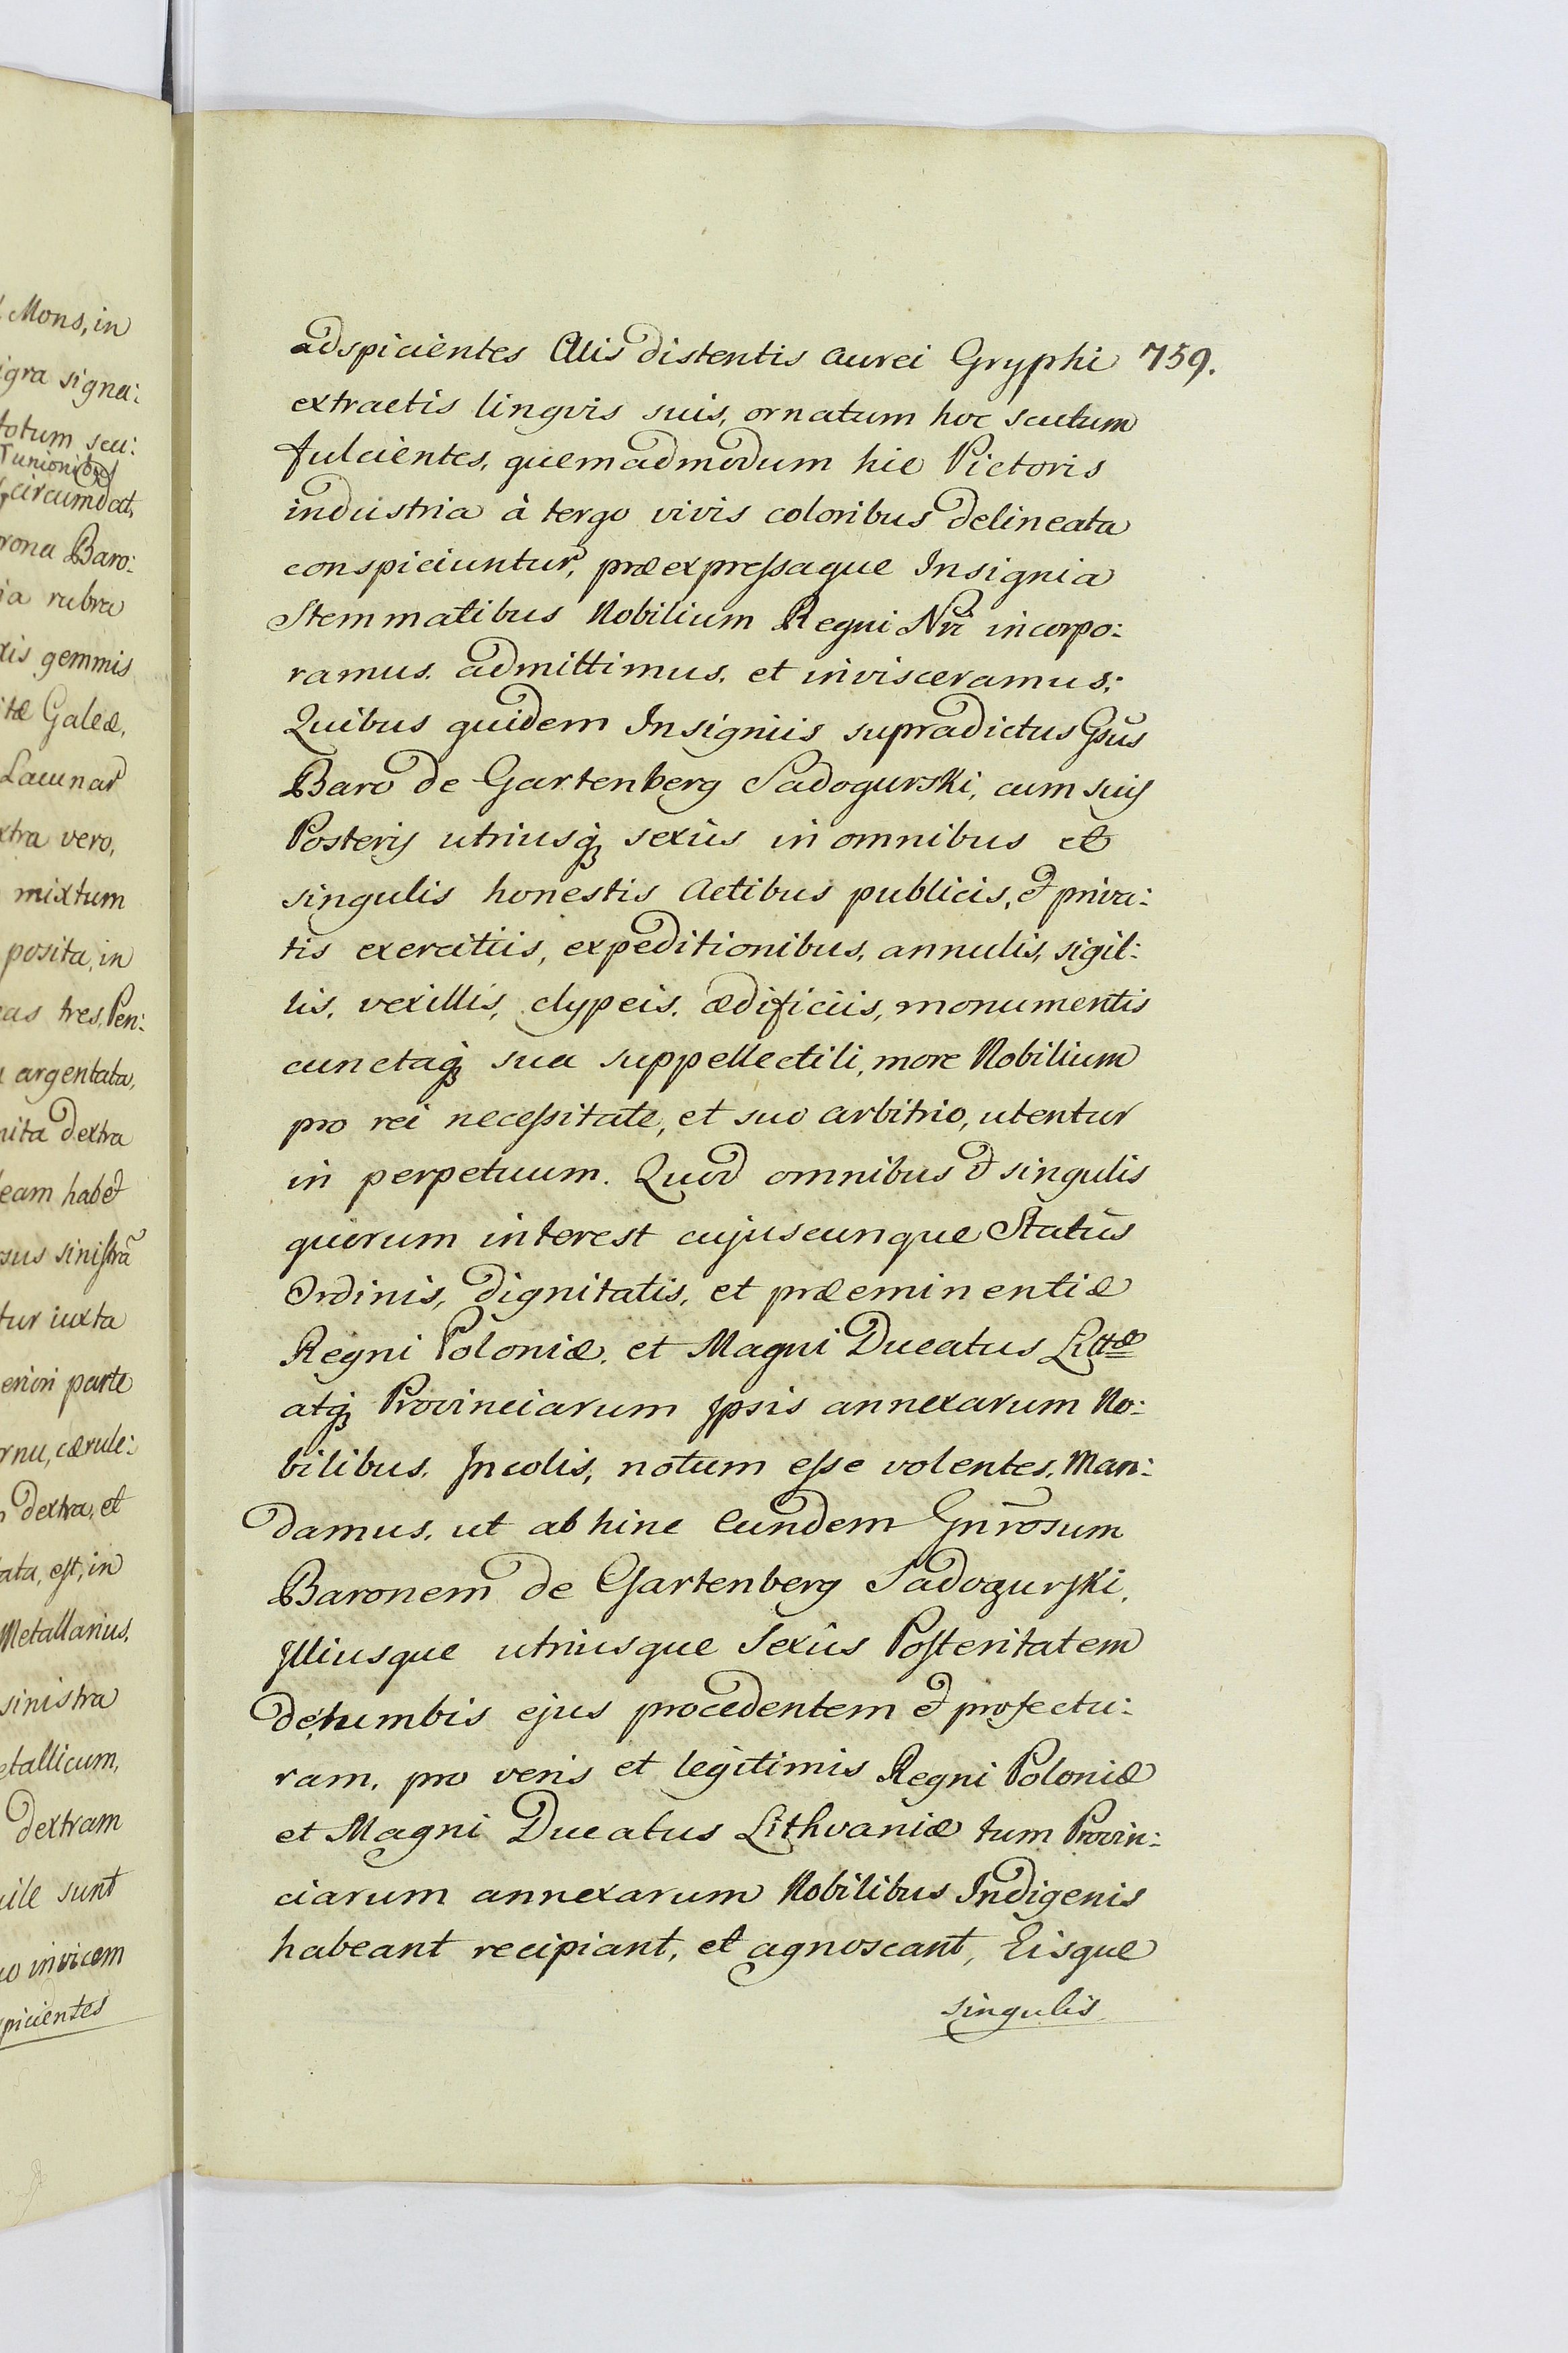 Mons, in
igra signa:
totum scu:
unionibus
circumdat,
rona Baro:
ia rubra
xis gemmis
itæ Galeæ,
Lacunar
xtra vero,
mixtum
posita, in
eas tres, Pen:
argentata,
nita dextra
eam habet
sus sinistrã
tur iuxta
eriori parte
rnu, cærule:
dextra, et
ata, est, in
Metallarius,
sinistra
etallicum,
dextram
uile sunt
uo invicem
picientes
adspicientes Alis distentis aurei Gryphi 759.
extractis lingvis suis, ornatum hoc scutum
fulcientes, quemadmodum hic Pictoris
industria à tergo vivis coloribus delineata
conspiciuntur, præexpressaque Insignia
Stemmatibus Nobilium Regni Nri incorpo:
ramus, admittimus, et invisceramus:
Quibus quidem Insigniis supradictus Gsus
Baro de Gartenberg Sadogurski, cum suis
Posteris utriusq; sexûs in omnibus et
singulis honestis Actibus publicis, et priva:
tis exercitiis, expeditionibus, annulis, sigil:
lis, vexillis, clypeis, ædificiis, monumentis
cunctaq; sua suppellectili, more Nobilium
pro rei necessitate, et suo arbitrio, utentur
in perpetuum. Quod omnibus et singulis
quorum interest cujuscunque Statûs
Ordinis, dignitatis, et præeminentiæ
Regni Poloniæ, et Magni Ducatus Littæ
atq; Provinciarum Ipsis annexarum No:
bilibus, Incolis, notum esse volentes, Man:
damus, ut abhinc Eundem Gnrosum
Baronem de Gartenberg Sadogurski,
Illiusque utriusque Sexûs Posteritatem
de lumbis ejus procedentem et profectu:
ram, pro veris et legitimis Regni Poloniæ
et Magni Ducatus Lithvaniæ tum Provin:
ciarum annexarum Nobilibus Indigenis
habeant recipiant, et agnoscant, Eisque
singulis